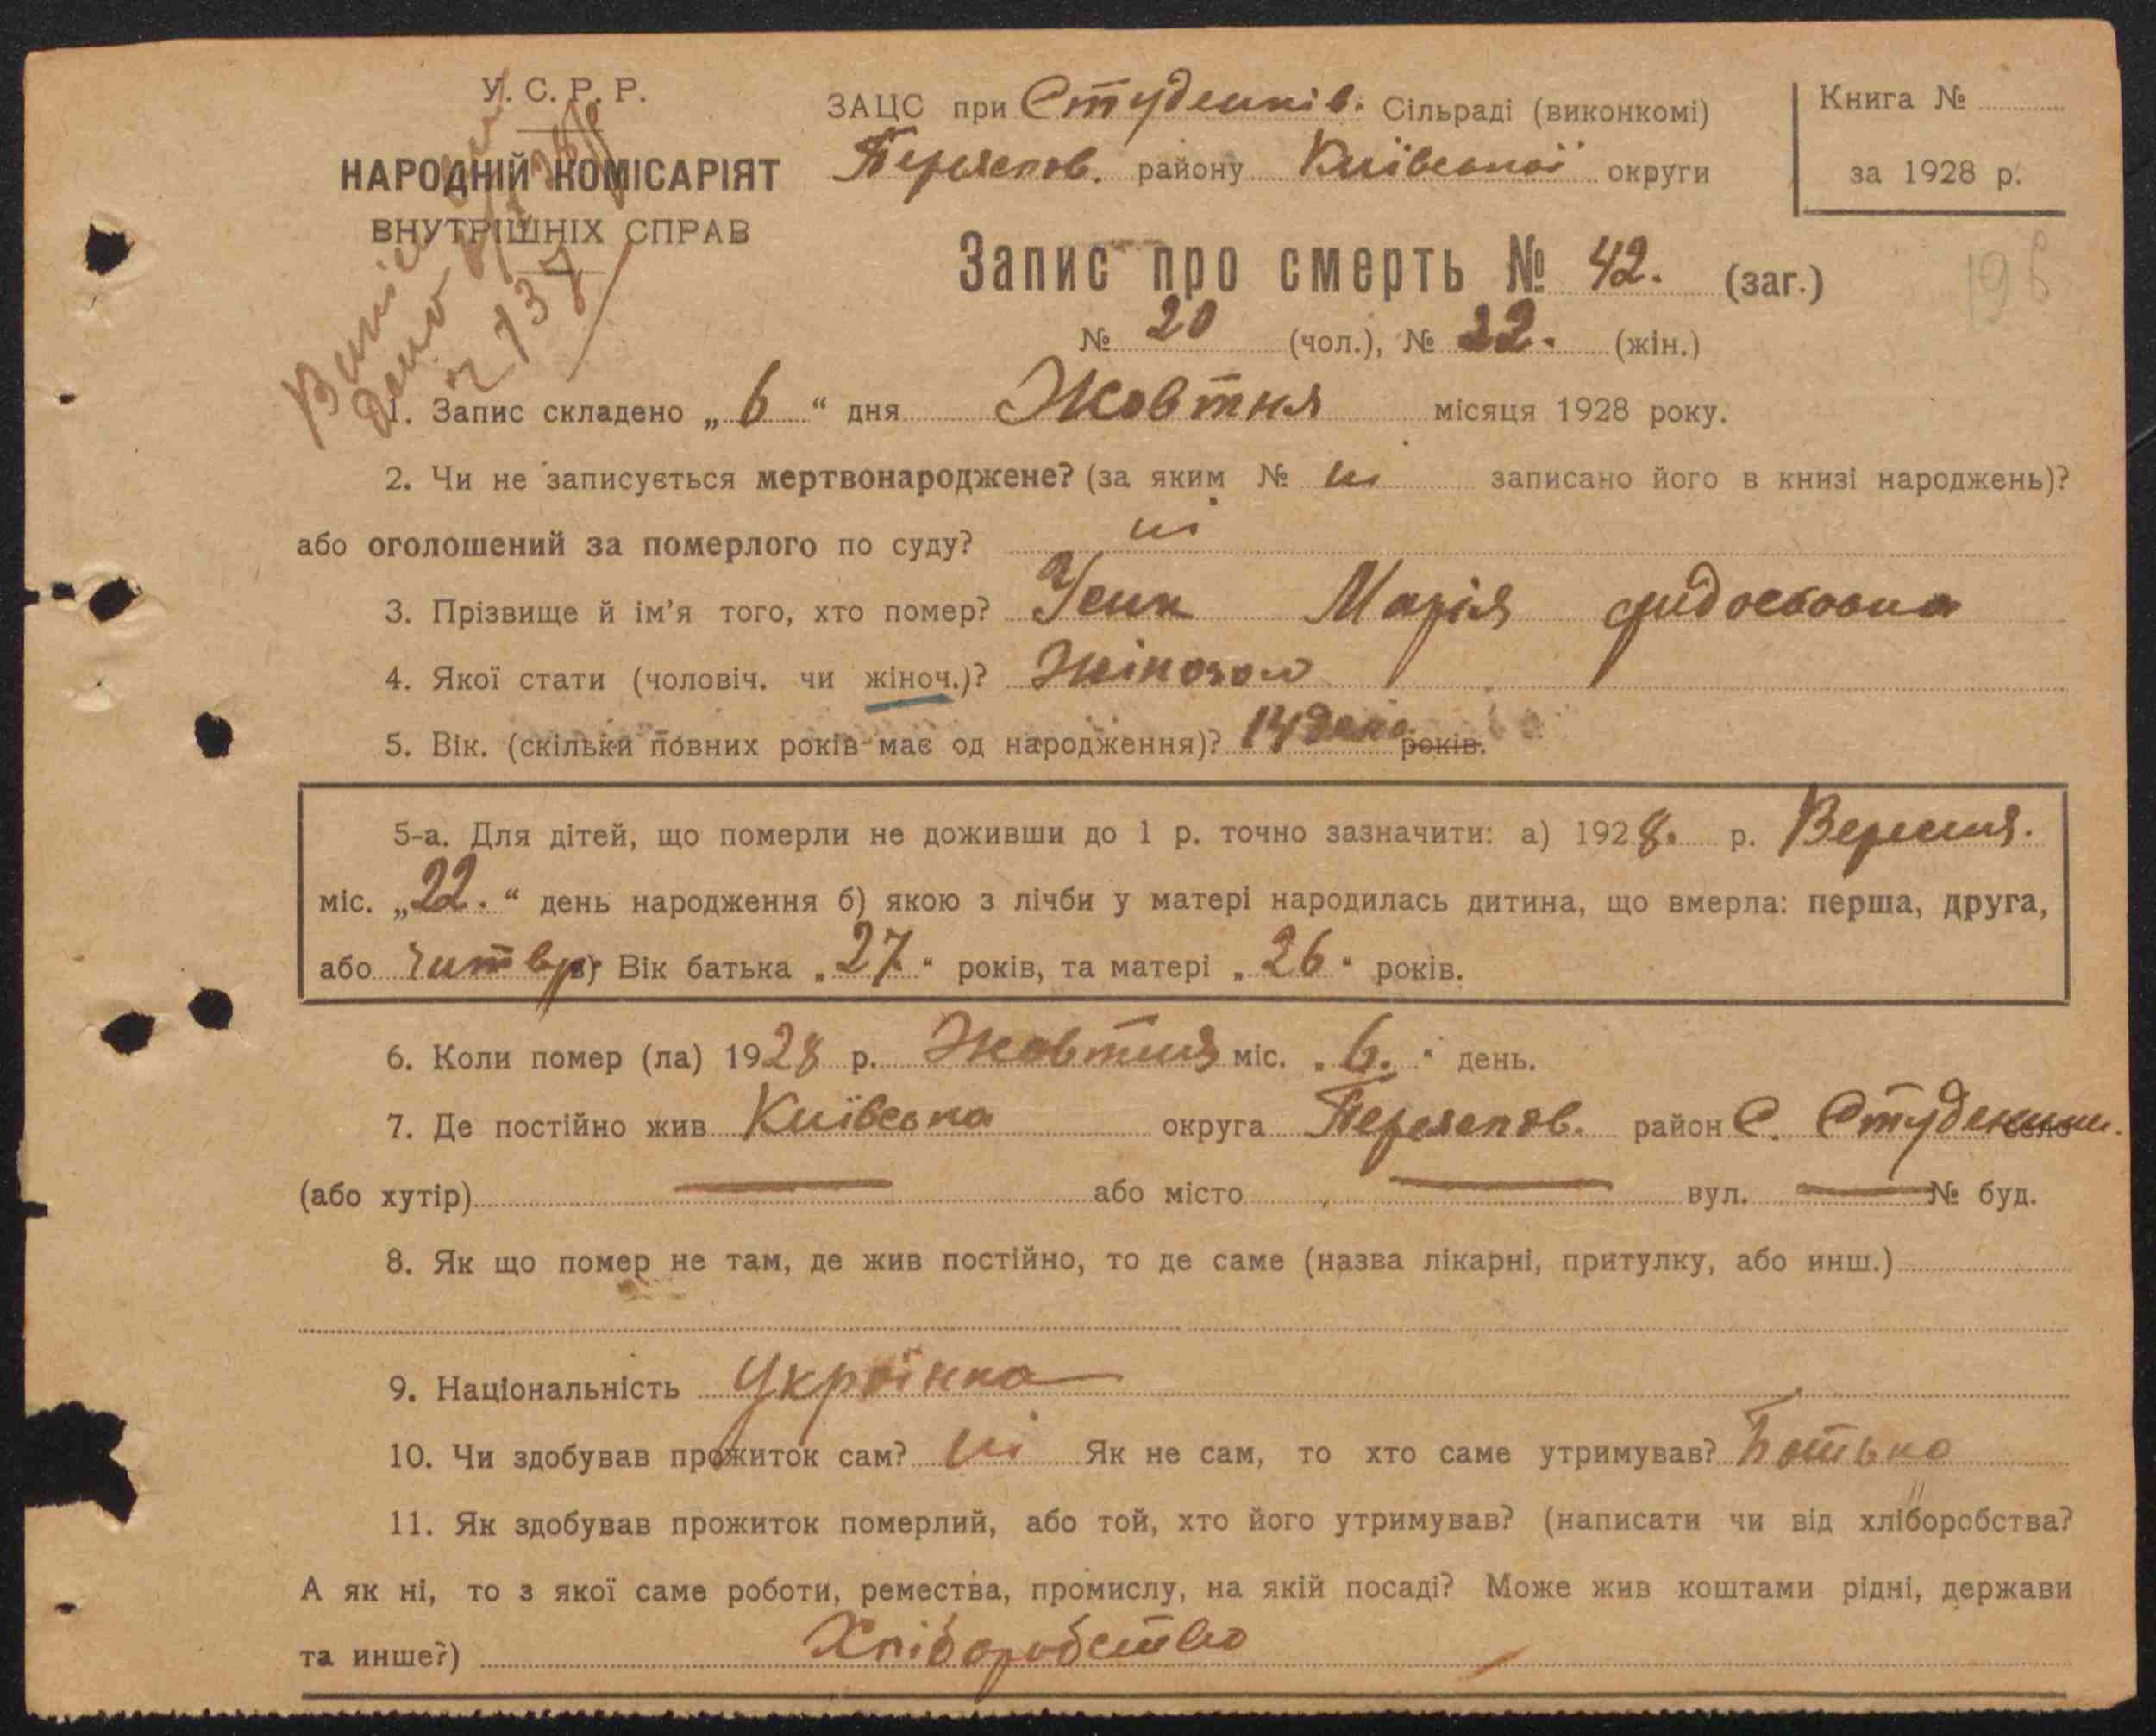 У. С. Р. Р.
НАРОДНІЙ КОМІСАРІЯТ
ВНУТРІШНІХ СПРАВ
ЗАЦС при Студеників. Сільраді (виконкомі)
Переяслів. району Київської округи
Книга №
за 1928 р.
Запис про смерть № 42. (заг.)
196
№ 20 (чол.), № 22. (жін.)
1. Запис складено „ 6 “ дня Жовтня місяця 1928 року.
2. Чи не записується мертвонароджене? (за яким № ні записано його в книзі народжень)?
або оголошений за померлого по суду? ні
3. Прізвище й ім'я того, хто помер? Усик Марія Федосовна
4. Якої стати (чоловіч. чи жіноч.)? Жіночою
5. Вік. (скільки повних років має од народження)? 14 день років.
5-а. Для дітей, що померли не доживши до 1 р. точно зазначити: а) 1928. р. Вересня.
міс. „22.“ день народження б) якою з лічби у матері народилась дитина, що вмерла: перша, друга,
або читвер в) Вік батька „27.“ років, та матері „26“ років.
6. Коли помер (ла) 1928 р. Жовтня міс. „6.“ день.
7. Де постійно жив Київська округа Переяслів. район С. Студеники. село
(або хутір) — або місто — вул. — № буд.
8. Як що помер не там, де жив постійно, то де саме (назва лікарні, притулку, або инш.)
9. Національність Українка
10. Чи здобував прожиток сам? ні Як не сам, то хто саме утримував? Батько
11. Як здобував прожиток померлий, або той, хто його утримував? (написати чи від хліборобства?
А як ні, то з якої саме роботи, ремества, промислу, на якій посаді? Може жив коштами рідні, держави
та инше?) Хліборобство